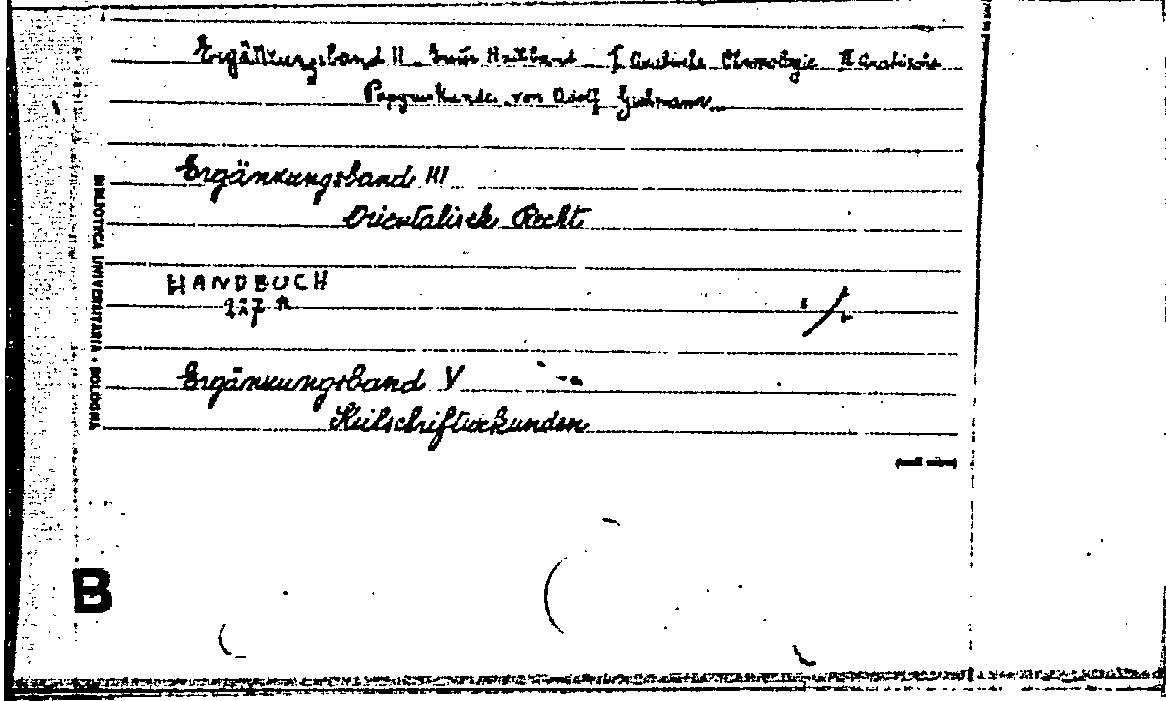 Ergänzungsband II Erster Halbband I Arabische Chronologie II Arabische
Papyruskunde. von Adolf Grohmann
Ergänzungsband III
Orientalisch Recht
HANDBUCH
Ergänzungsband V
Keilschrifturkunden
BIBLIOTECA UNIVERSITARIA • BOLOGNA
B